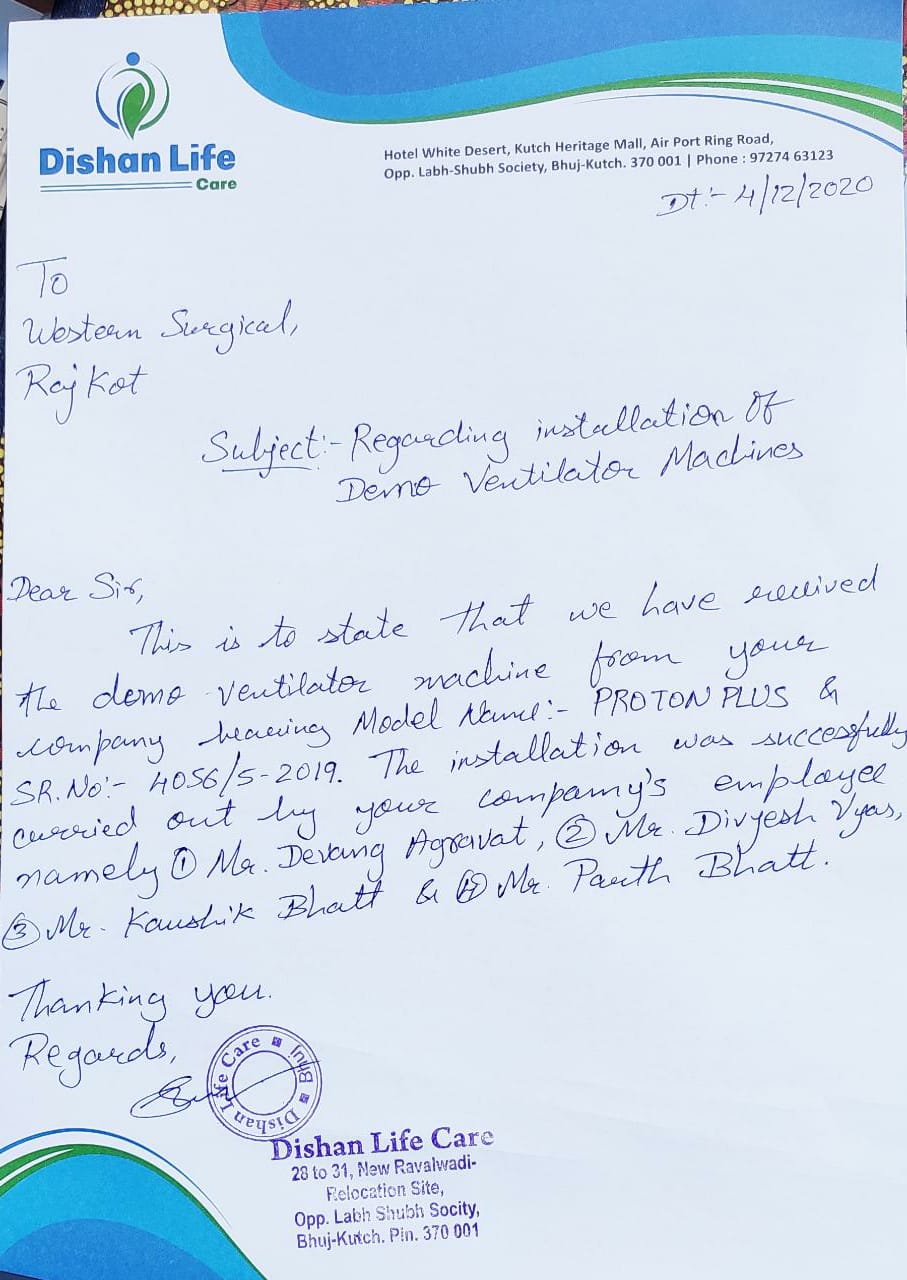 Dishan Life
Care
Hotel White Desert, Kutch Heritage Mall, Air Port Ring Road,
Opp. Labh-Shubh Society, Bhuj-Kutch. 370 001 | Phone : 97274 63123
Dt:- 4/12/2020
To
Western Surgical,
Rajkot
Subject:- Regarding installation Of
Demo Ventilator Machines
Dear Sir,
This is to state that we have received
the demo ventilator machine from your
company bearing Model Name:- PROTON PLUS &
SR.No:- 4056/5-2019. The installation was successfully
curried out by your company's employee
namely ① Mr. Devang Agravat, ② Mr. Divyesh Vyas,
③ Mr. Kaushik Bhatt & ④ Mr. Parth Bhatt.
Thanking you.
Regards,
Dishan Life Care ■ Bhuj ■
Dishan Life Care
28 to 31, New Ravalwadi-
Relocation Site,
Opp. Labh Shubh Socity,
Bhuj-Kutch. Pin. 370 001